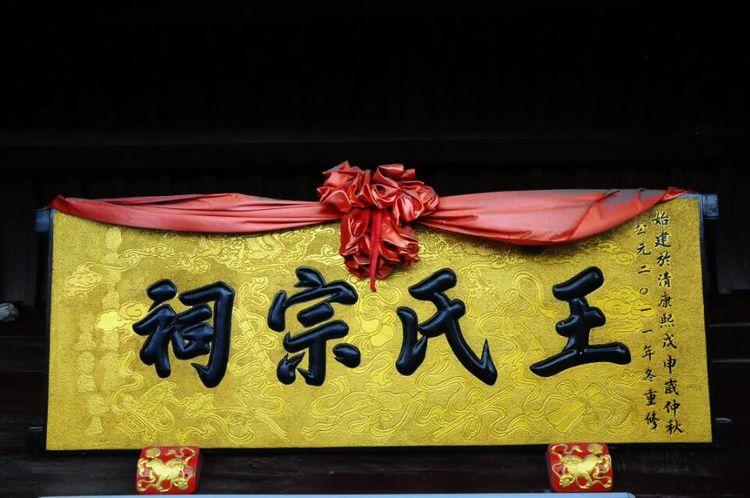 始建於清康熙戊申歲仲秋
公元二〇一一年冬重修
王氏宗祠